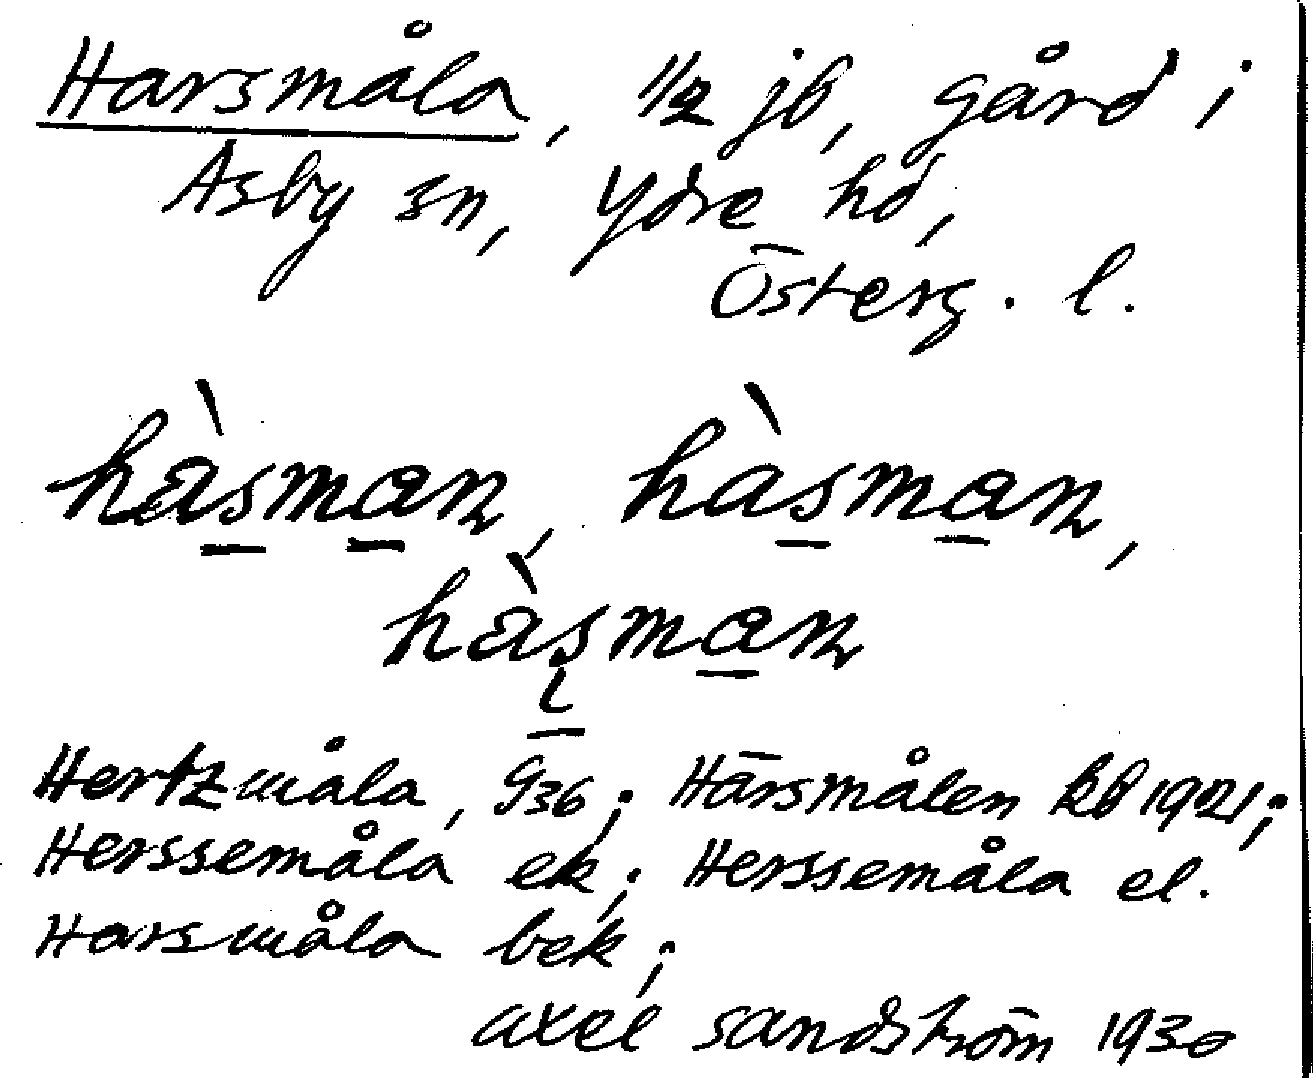 Harsmåla, 1/2 jb, gård i
Asby sn, Ydre hd,
Österg. l.
hàsman, hàsman,
hàsman
Hertzmåla, G36; Härsmålen kb 1921;
Herssemåla ek; Herssemåla el.
Harsmåla bek;
axel sandström 1930